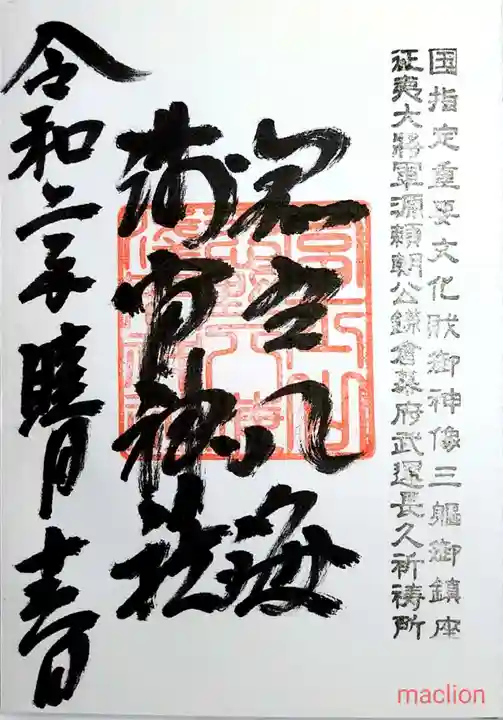 国指定重要文化財御神像三軀御鎮座
征夷大將軍源頼朝公鎌倉幕府武運長久祈祷所
八海
神社
令和二年睦月
maclion